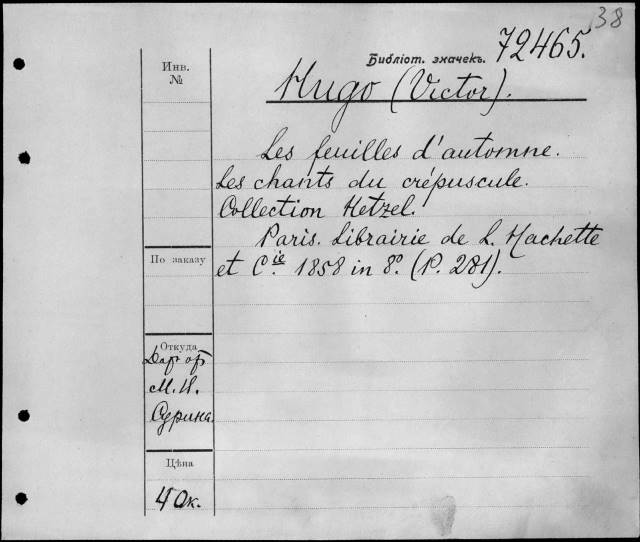 38
Библіот. значекъ. 72465.
Инв.
№
Hugo (Victor).
Les feuilles d'automne.
Les chants du crépuscule.
Collection Hetzel.
Paris. Librairie de L. Hachette
et Cie. 1858 in 8º. (P. 281).
По заказу
Откуда
Даръ
М. И.
Сурина.
Цѣна
40к.